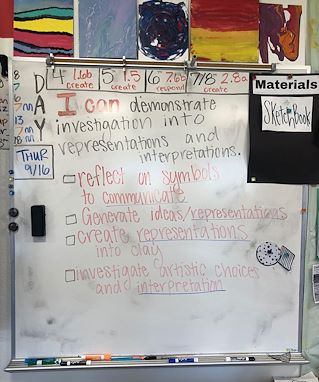 4 1.1ob create 5 1.5 create 6 7.6b respond 7/8 2.8a create
Materials
Sketchbook
D
A
Y
THUR
9/16
I can demonstrate
investigation into
representations and
interpretations.
reflect on symbols
to communicate
Generate ideas/representations
create representations
into clay
investigate artistic choices
and interpretation